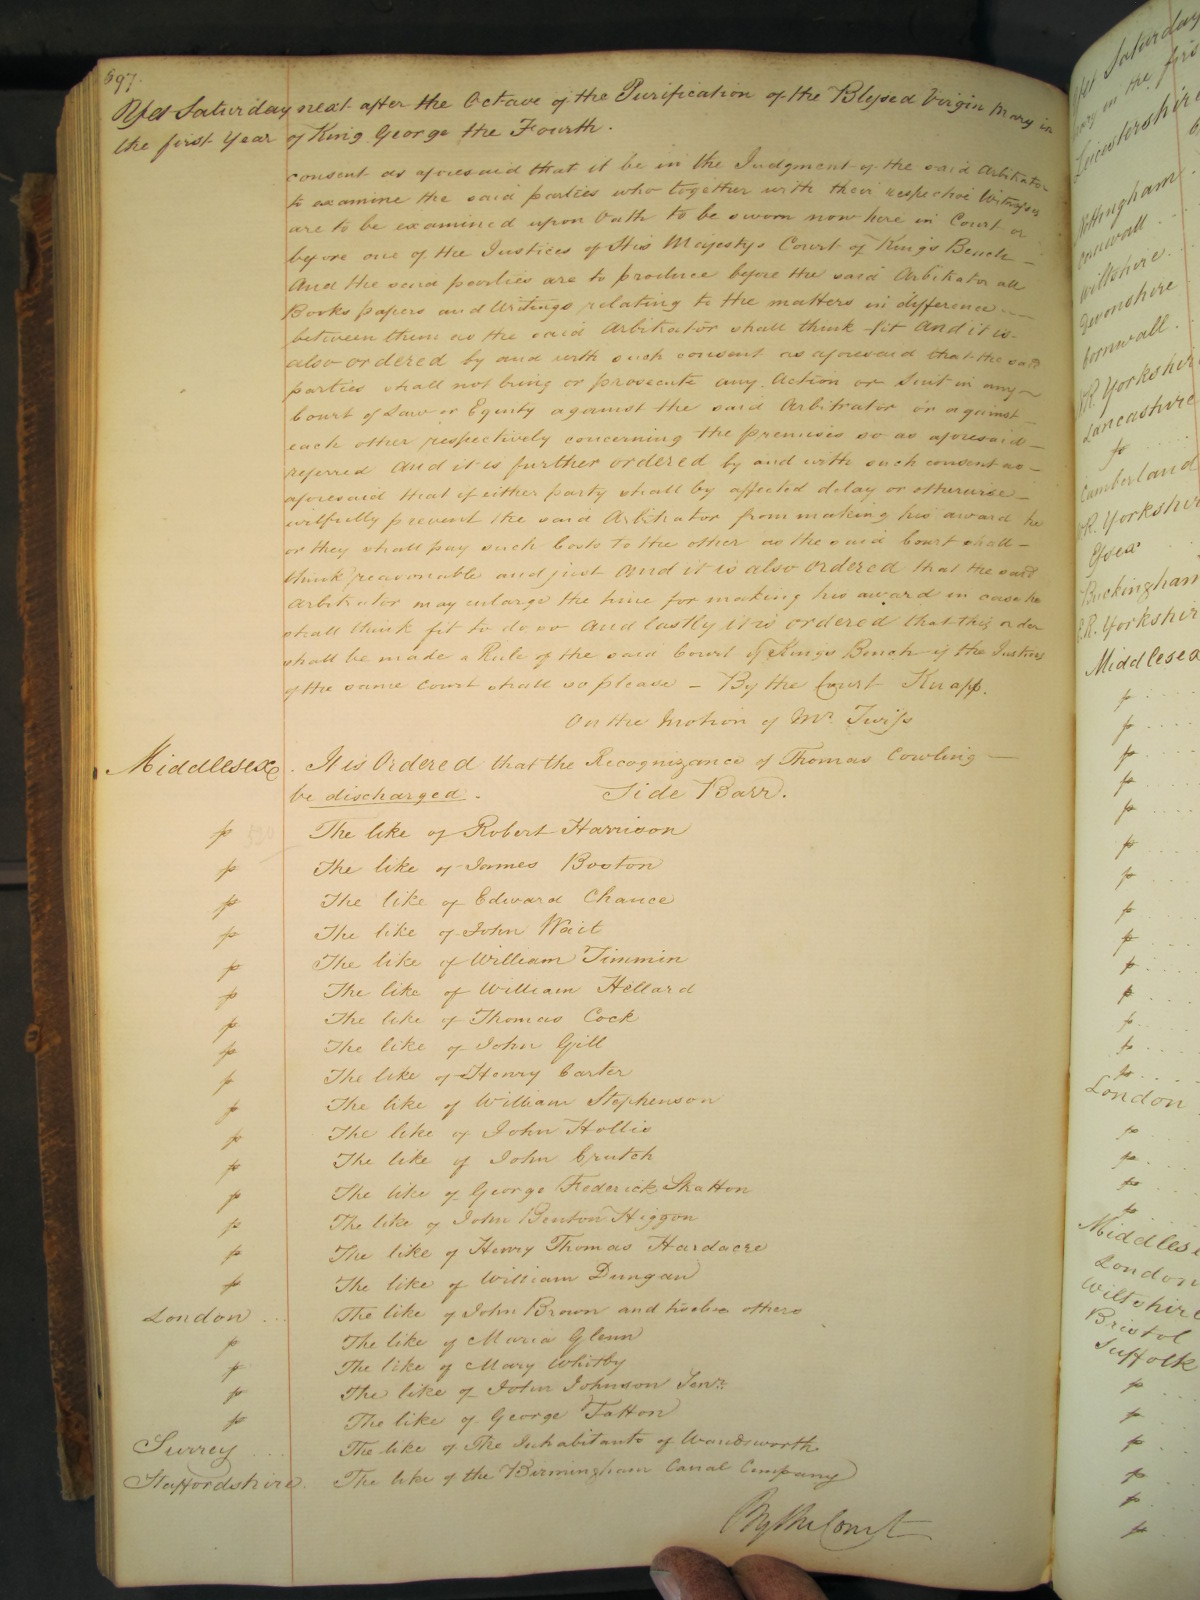 597.
Yet Saturday next after the Octave of the Purification of the Blessed Virgin Mary in
the first Year of King George the Fourth.
consent as aforesaid that it be in the Judgment of the said Arbitrator
to examine the said parties who together with their respective Witnesses
are to be examined upon Oath to be sworn now here in Court or
before one of the Justices of His Majestys Court of Kings Bench
And the said parties are to produce before the said Arbitrator all
Books papers and Writings relating to the matters in difference
between them as the said Arbitrator shall think fit And it is
also ordered by and with such consent as aforesaid that the said
parties shall not bring or prosecute any Action or Suit in any
Court of Law or Equity against the said Arbitrator or against
each other respectively concerning the premises so as aforesaid
referred And it is further ordered by and with such consent as
aforesaid that if either party shall by affected delay or otherwise
wilfully prevent the said Arbitrator from making his award he
or they shall pay such Costs to the other as the said Court shall
think reasonable and just And it is also ordered that the said
Arbitrator may enlarge the time for making his award in case he
shall think fit to do so And lastly it is ordered that this order
shall be made a Rule of the said Court of Kings Bench if the Justices
of the same Court shall so please - By the Court Knapp.
On the Motion of Mr. Twiss
Middlesex. It is Ordered that the Recognizance of Thomas Cowling
be discharged. Side Barr.
p The like of Robert Harrison
p The like of James Boston
p The like of Edward Chance
p The like of John Wait
p The like of William Timmin
p The like of William Hillard
p The like of Thomas Cock
p The like of John Gill
p The like of Henry Carter
p The like of William Stephenson
p The like of John Hollis
p The like of John Crutch
p The like of George Frederick Skatton
p The like of John Benton Higgon
p The like of Henry Thomas Hardacre
p The like of William Dungan
London ... The like of John Brown and twelve others
p The like of Maria Glenn
p The like of Mary Whitby
p The like of John Johnson Senr.
p The like of George Tatton
Surrey ... The like of The Inhabitants of Wandsworth
Staffordshire. The like of the Birmingham Canal Company
By the Court
Saturday
in the firs
Leicestershire
Nottingham
Cornwall
Wiltshire.
Devonshire
Cornwall.
R. Yorkshir
Lancashire
p
Cumberland
R. Yorkshir
Essex
Buckingham
R. Yorkshir
Middlesex
p
p
p
p
p
p
p
p
p
p
p
p
p
p
London
p
p
p
p
Middlese
London
Wiltshire
Bristol
Suffolk
p
p
p
p
p
p